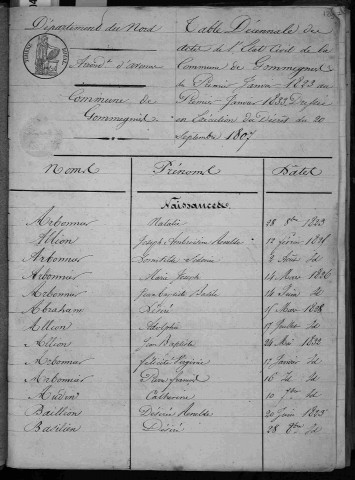 Département du Nord
Arrond.t d'avesnes
Commune de
Gommegnies
Table Décennale des
actes de l'Etat Civil de la
Commune de Gommegnies
du Premier Janvier 1823 au
Premier Janvier 1833 Dressée
en Exécution du Décret du 20
Septembre 1807
Noms Prénoms Dates
Naissances
Arbonnier Natalie 28 8bre 1823
Allion Joseph 12 février
Arbonnier 2 Août id
Arbonnier Marie Joseph 14 Mars 1826
Arbonnier Jean Baptiste 14 Juin id
Abraham Désiré 15 Mars 1828
Allion Adolphe 17 Juillet id
Allion Jean Baptiste 24 Mai 1832
Arbonnier félicité Virginie 17 Janvier id
Arbonnier Pierre françois 16 id id
Audin Catherine 10 7bre id
Baillion Désiré 20 Juin 1823
Basilien Désiré 28 8bre id